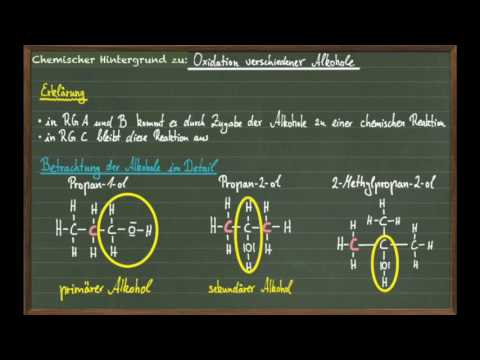 Chemischer Hintergrund zu: Oxidation verschiedener Alkohole
Erklärung
• in RG A und B kommt es durch Zugabe der Alkohole zu einer chemischen Reaktion
• in RG C bleibt diese Reaktion aus
Betrachtung der Alkohole im Detail
Propan-1-ol Propan-2-ol 2-Methylpropan-2-ol
primärer Alkohol sekundärer Alkohol